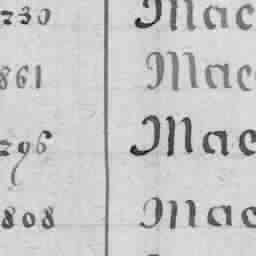 230 Mac
861 Mac
296 Mac
808 Mac